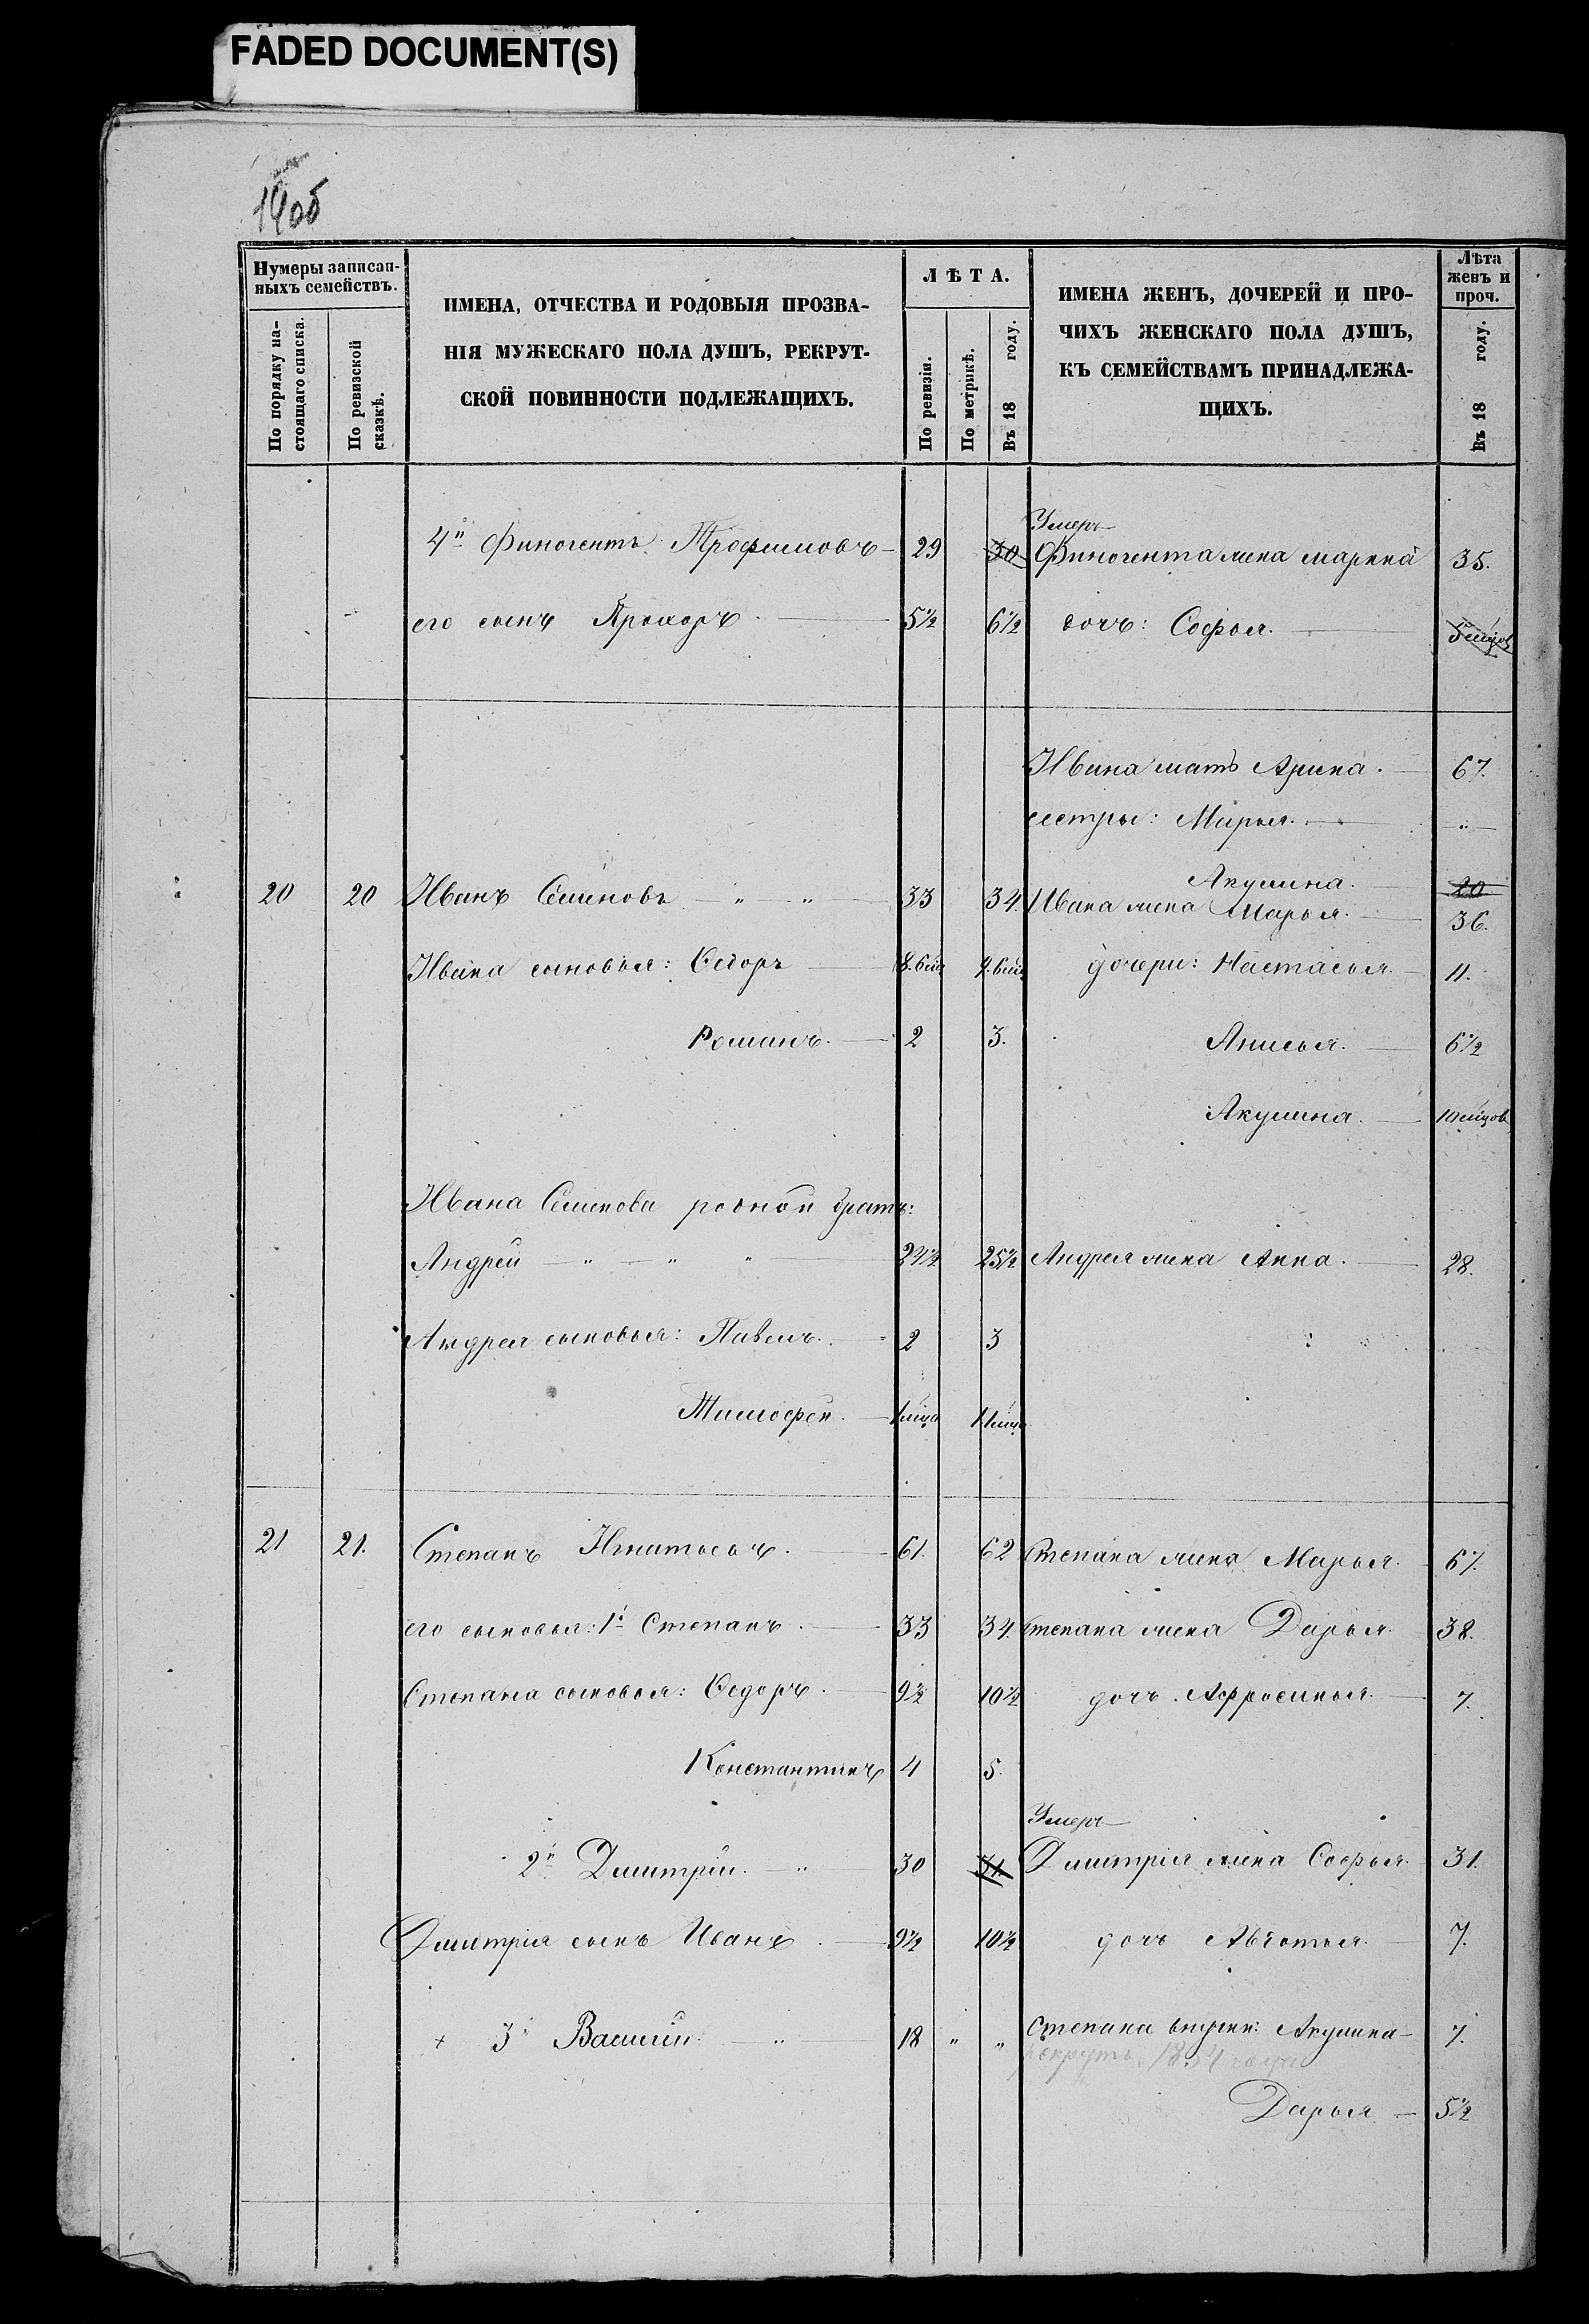 FADED DOCUMENT(S)
19об
Нумеры записан-
ныхъ семействъ.
По порядку на-
стоящаго списка.
По ревизской
сказкѣ.
ИМЕНА, ОТЧЕСТВА И РОДОВЫЯ ПРОЗВА-
НІЯ МУЖЕСКАГО ПОЛА ДУШЪ, РЕКРУТ-
СКОЙ ПОВИННОСТИ ПОДЛЕЖАЩИХЪ.
ЛѢТА.
По ревизіи.
По метрикѣ.
Въ 18 году.
ИМЕНА ЖЕНЪ, ДОЧЕРЕЙ И ПРО-
ЧИХЪ ЖЕНСКАГО ПОЛА ДУШЪ,
КЪ СЕМЕЙСТВАМЪ ПРИНАДЛЕЖА-
ЩИХЪ.
Лѣта
женъ и
проч.
Въ 18 году.
Умеръ
4й Финогентъ Трофимовъ 29 30 Финогента жена марина 35.
его сынъ Прохоръ 5½ 6½ дочь: Софья. 5 мцов
Ивана мать Арина. 67.
сестры: Марья. "
Акулина. 20
20 20 Иванъ Семеновъ " " 33 34. Ивана жена Марья. 36.
Ивана сыновья: Ѳедоръ 8.6мц 9.6мц дочери: Настасья. 11.
Романъ. 2 3. Анисья. 6½
Акулина. 10 мцов
Ивана Семенова родной братъ:
Андрей " " " 24½ 25½ Андрея жена Анна. 28.
Андрея сыновья: Павелъ. 2 3
Тимофей. 1 мца 1.1 мца
21 21. Степанъ Игнатьевъ. 61. 62 Степана жена Марья. 67.
его сыновья: 1й Степанъ. 33 34. Степана жена Дарья. 38.
Степана сыновья: Ѳедоръ. 9½ 10½ дочь Афросинья. 7.
Константинъ 4 5.
Умеръ
2й Дмитрій. " 30 31 Дмитрія жена Софья. 31.
Дмитрія сынъ Иванъ. 9½ 10½ дочь Авдотья. 7.
+ 3й Василій " 18 " " Степана внучки: Акулина 7.
рекрутъ 1854 года
Дарья 5½